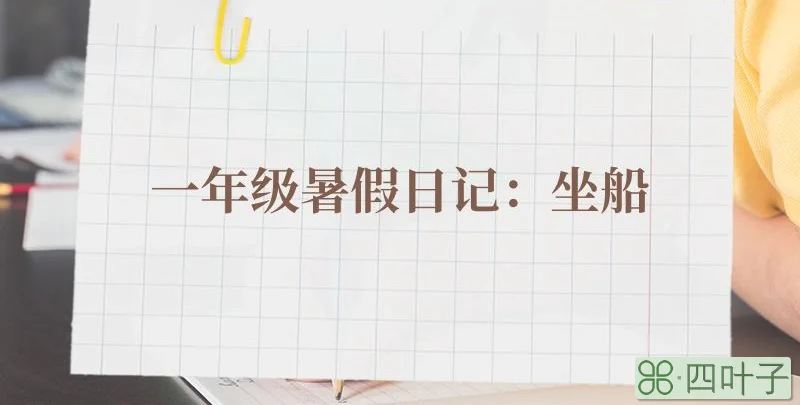 一年级暑假日记：坐船
四叶子